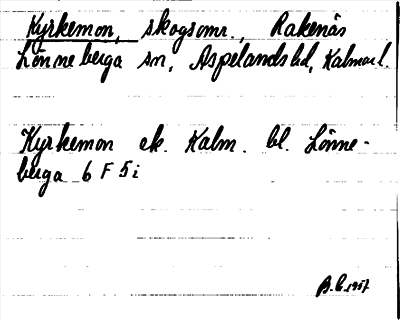 Kyrkemon, skogsomr., Rakenäs
Lönneberga sn, Aspelands hd, Kalmar l.
Kyrkemon ek. Kalm. bl. Lönne-
berga 6 F 5 i
B.E. 1957